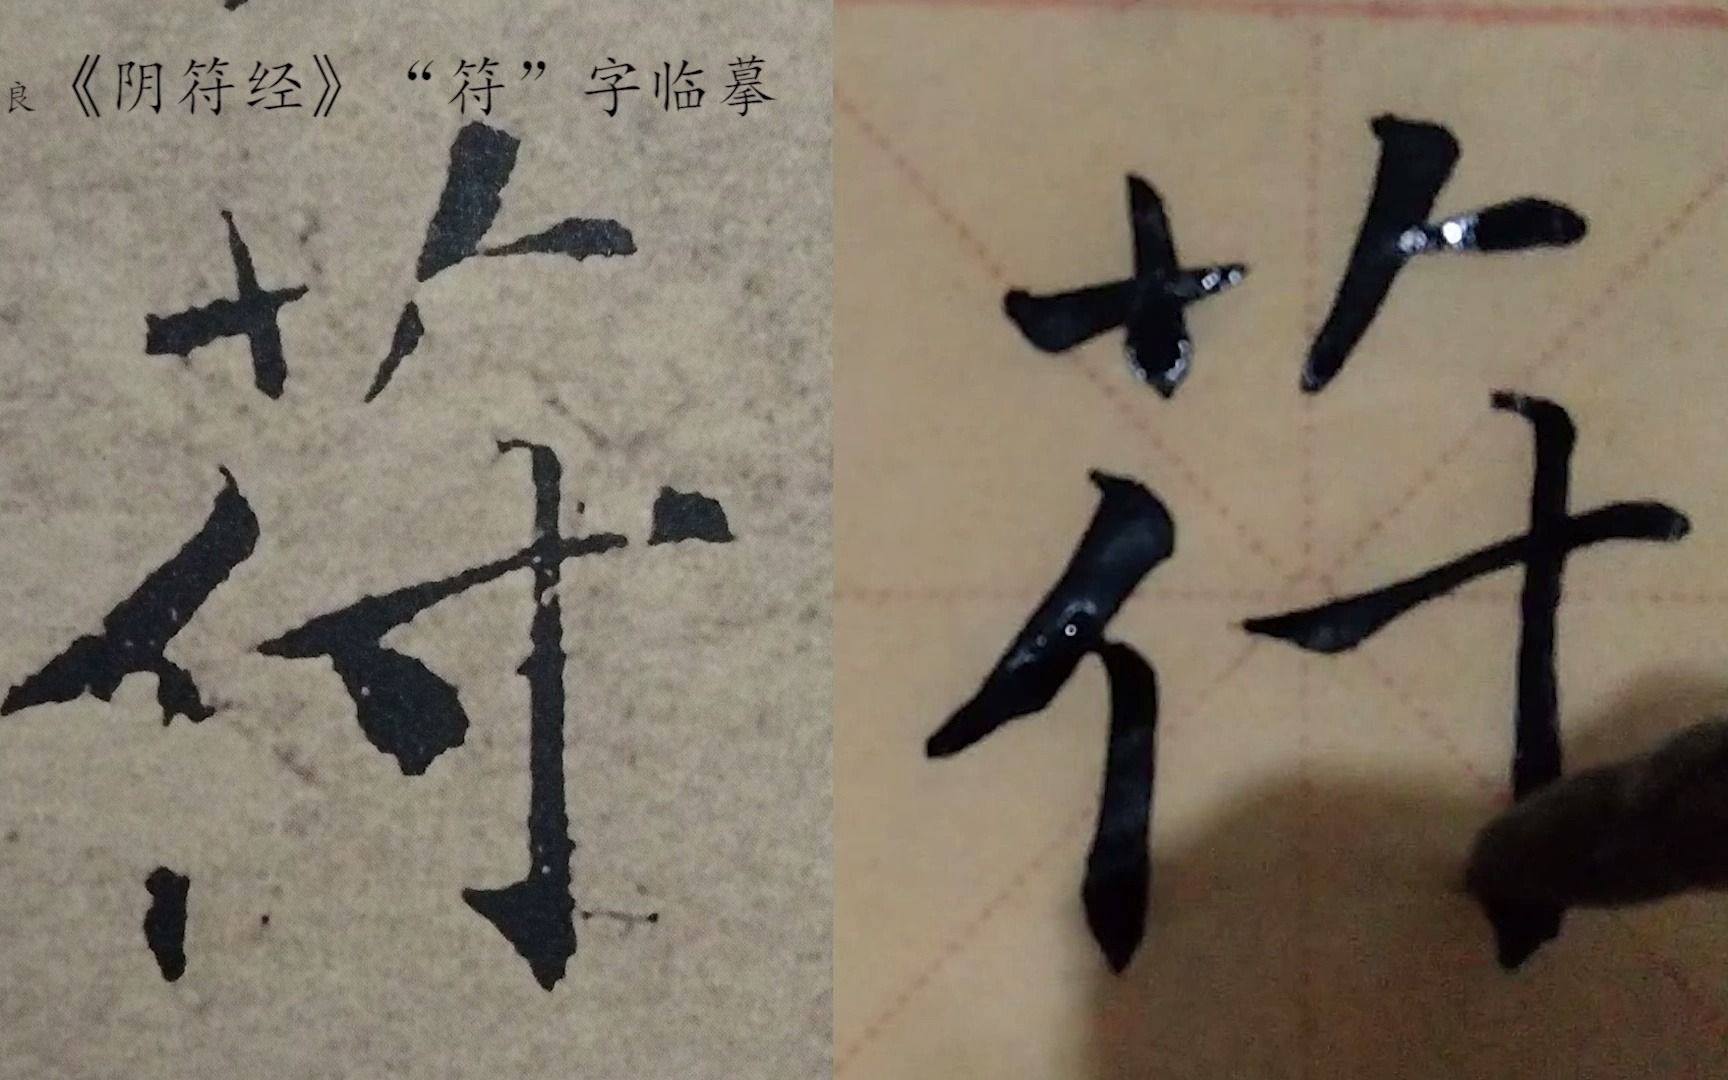 良《阴符经》“符”字临摹
符
符